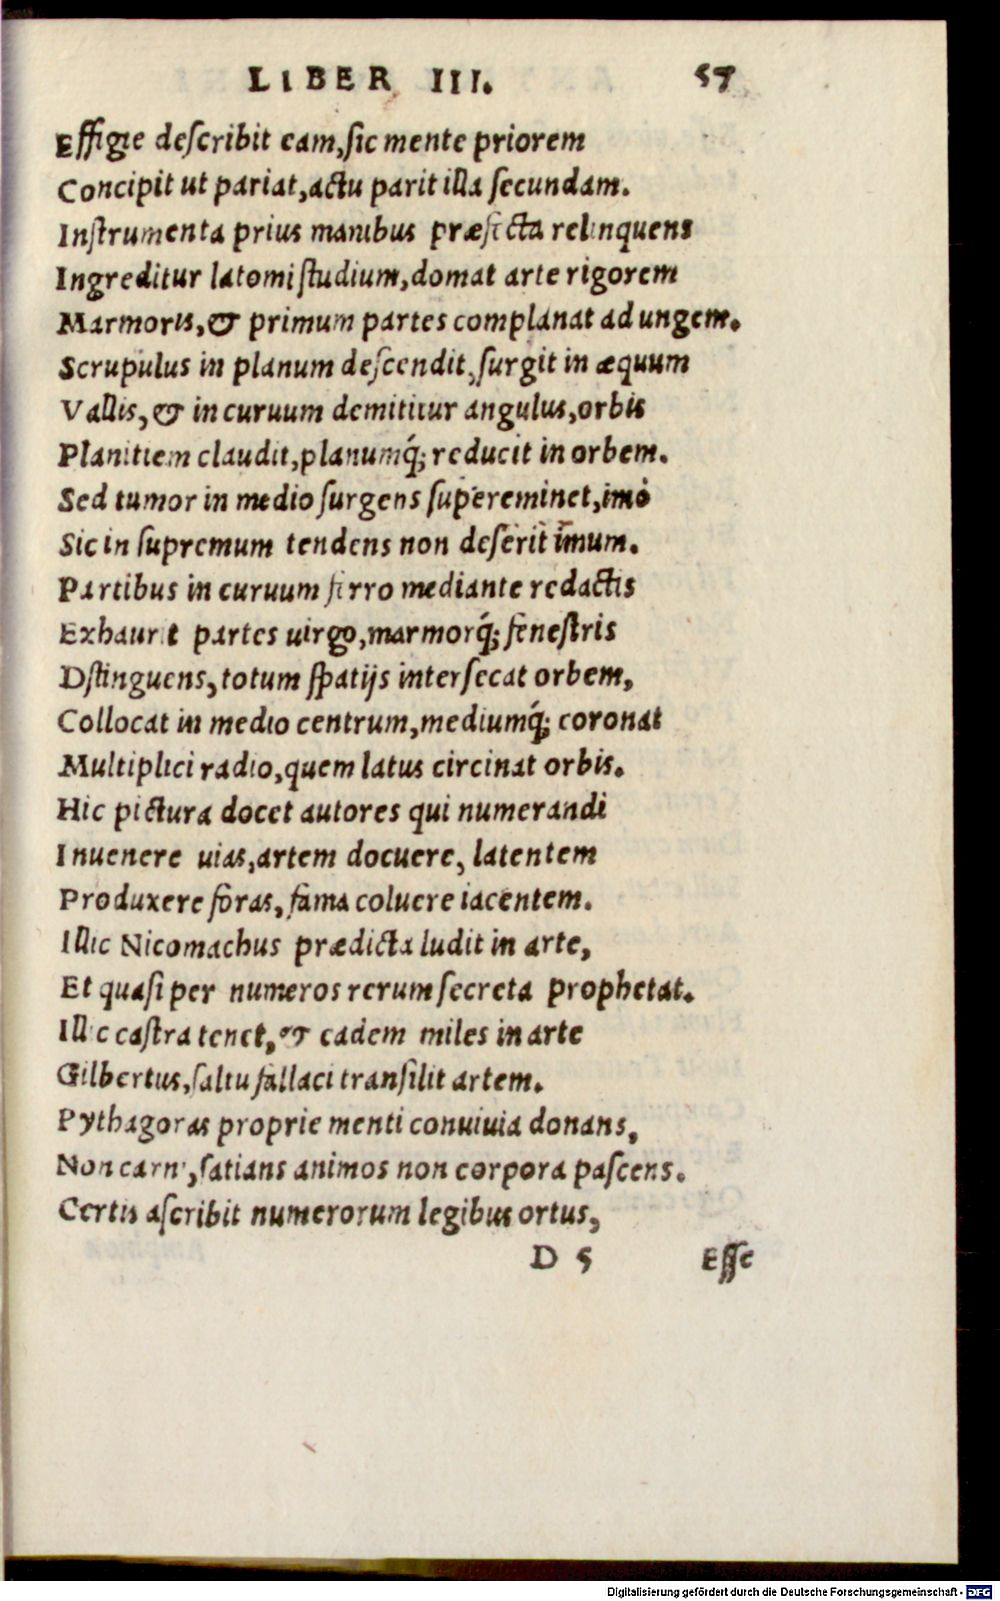 LIBER III. 57
Effigie deſcribit eam,ſic mente priorem
Concipit ut pariat,actu parit illa ſecundam.
Inſtrumenta prius manibus præfecta relinquens
Ingreditur latomi ſtudium,domat arte rigorem
Marmoris,& primum partes complanat ad ungem.
Scrupulus in planum deſcendit,ſurgit in æquum
Vallis,& in curuum demittitur angulus,orbis
Planitiem claudit,planumq́; reducit in orbem.
Sed tumor in medio ſurgens ſupereminet,imò
Sic in ſupremum tendens non deſerit imum.
Partibus in curuum ferro mediante redactis
Exhaurit partes uirgo,marmorq́; feneſtris
Dſtinguens,totum ſpatijs interſecat orbem,
Collocat in medio centrum,mediumq́; coronat
Multiplici radio,quem latus circinat orbis.
Hic pictura docet autores qui numerandi
Inuenere uias,artem docuere, latentem
Produxere foras,fama coluere iacentem.
Illic Nicomachus prædicta ludit in arte,
Et quaſi per numeros rerum ſecreta prophetat.
Illic caſtra tenet,& eadem miles in arte
Gilbertus,ſaltu fallaci tranſilit artem.
Pythagoras proprie menti conuiuia donans,
Non carni,ſatians animos non corpora paſcens.
Certis aſcribit numerorum legibus ortus,
D 5 Eſſe
Digitalisierung gefördert durch die Deutsche Forschungsgemeinschaft - DFG